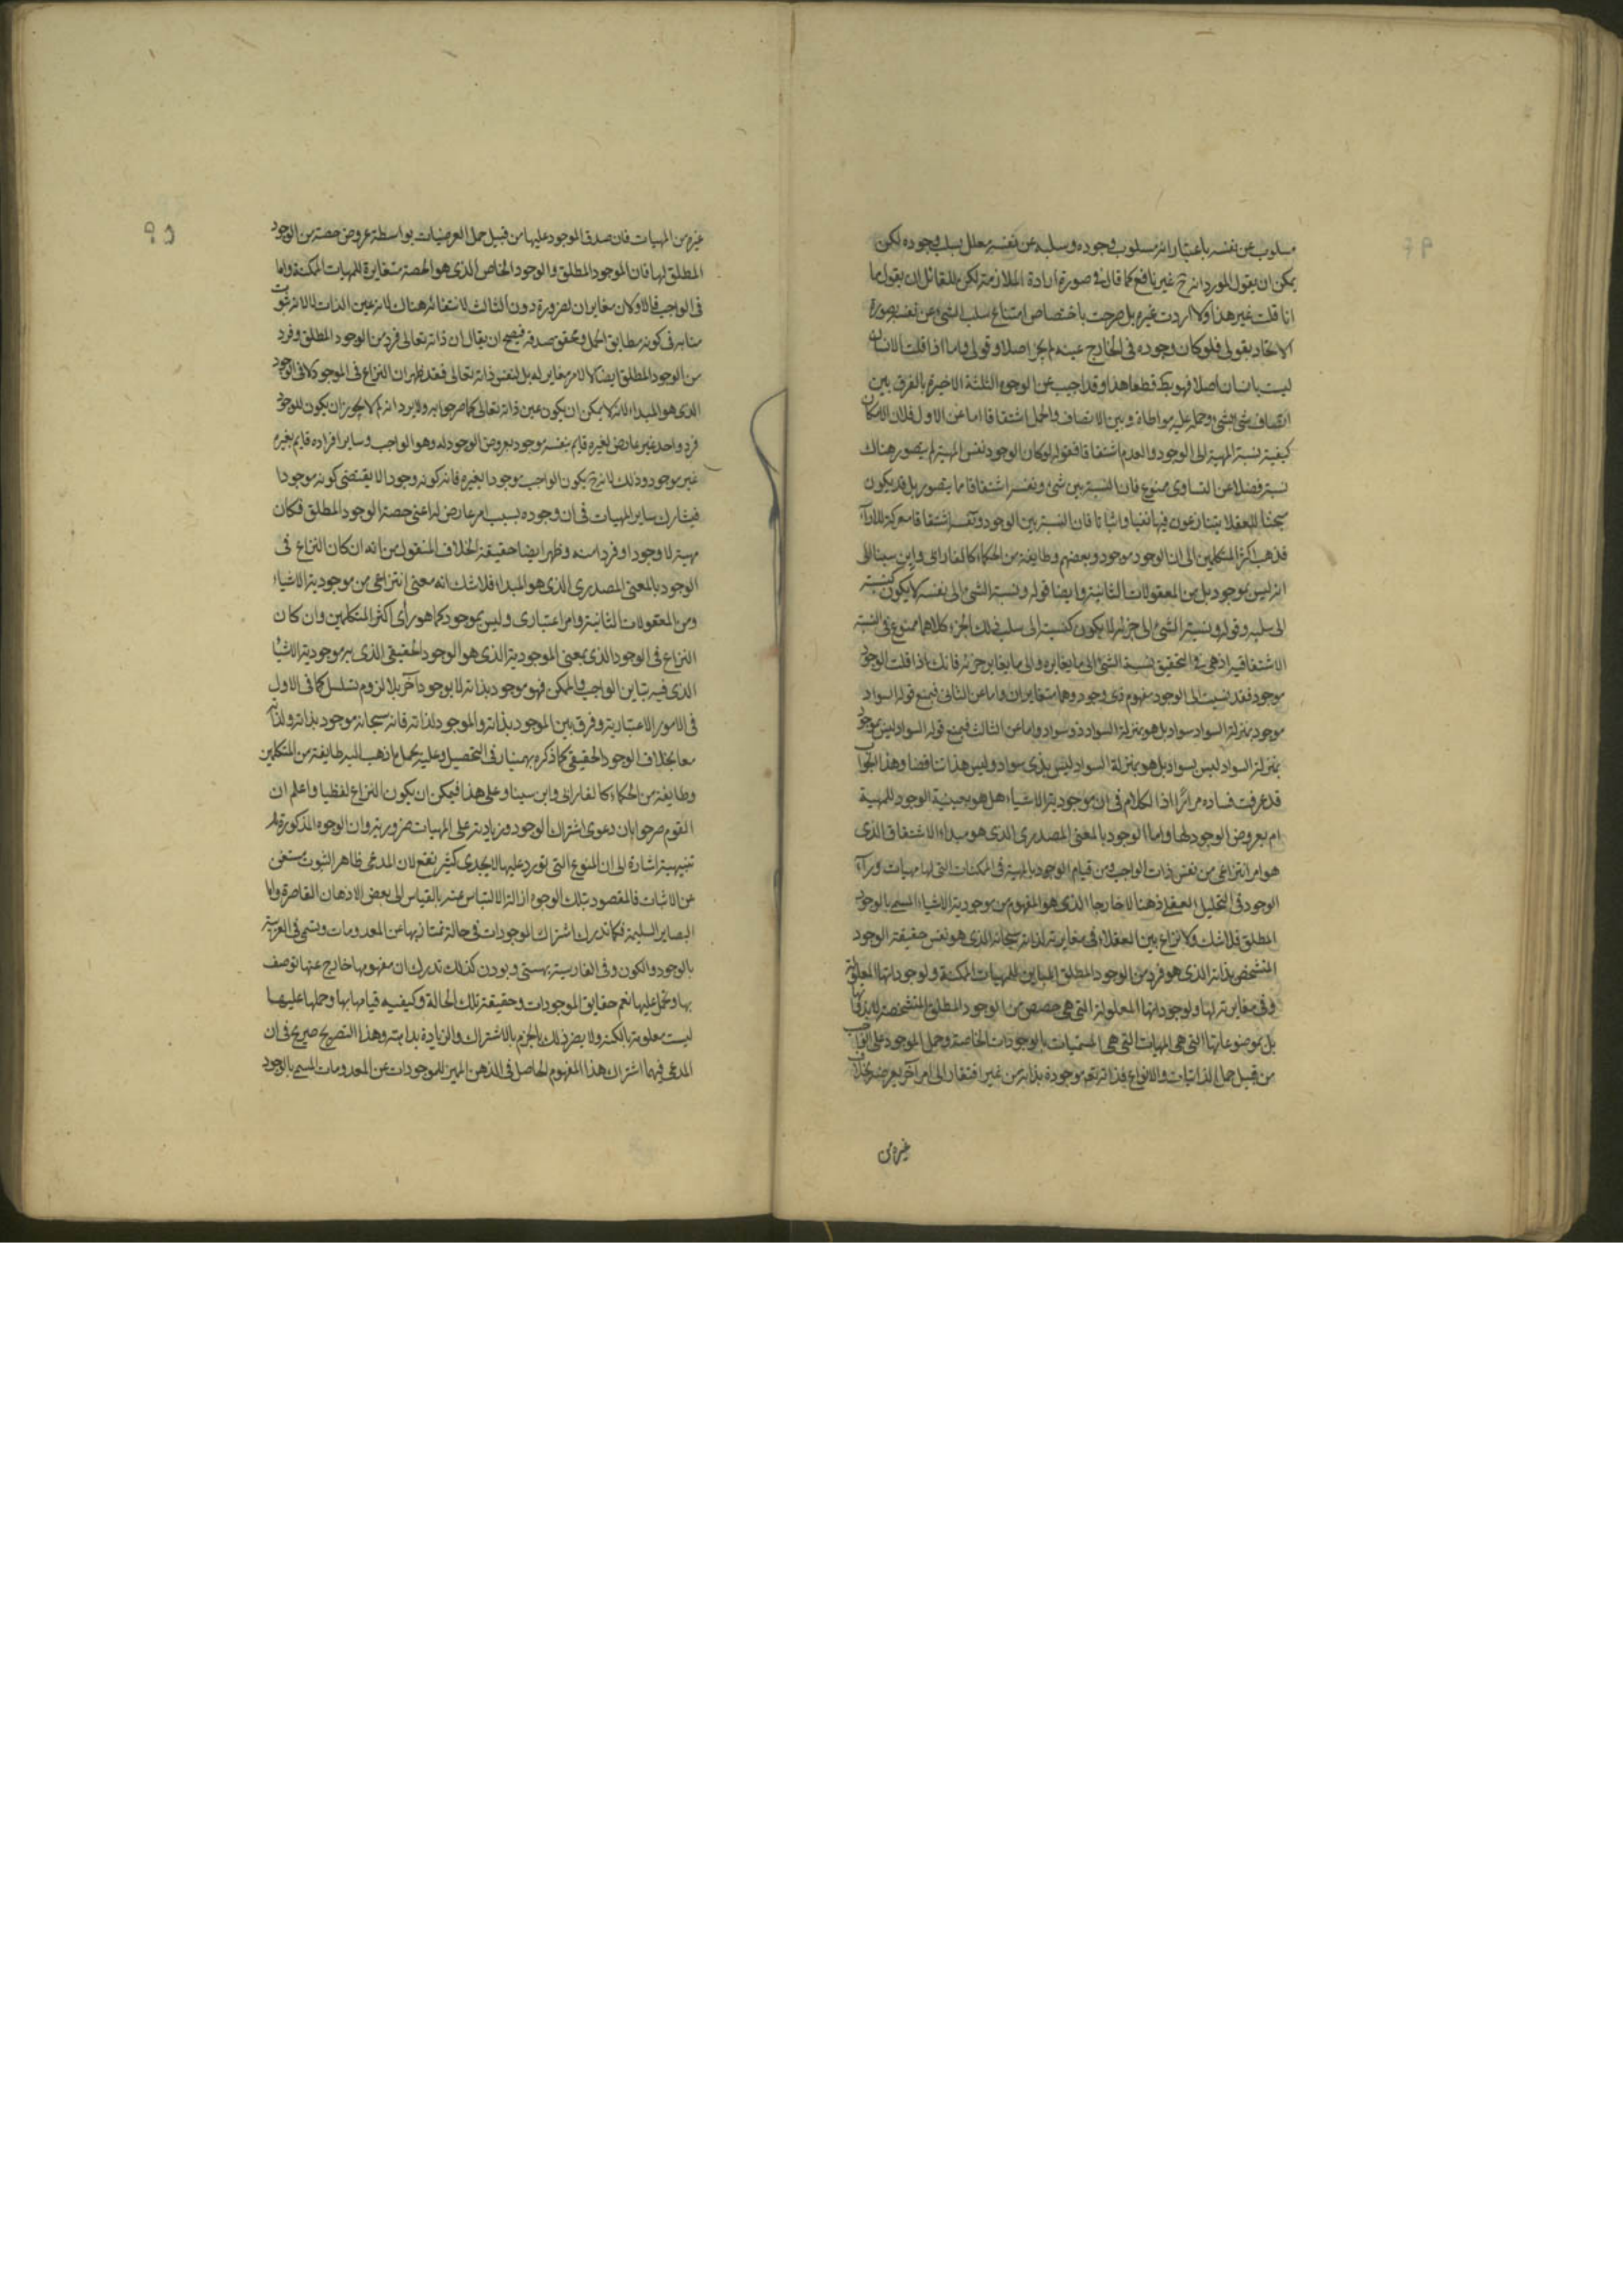 مسلوب عن نفسه باعتبار انه مسلوب وجوده وسلبه عن نفسه معلل بسلب وجوده لكن
يمكن ان يقول المورد انه ح غير نافع كما قاله فى صورة ارادة الملازمة لكن للقائل ان يقول ما
انا قلت غير هذا ولا اردت غيره بل صرحت باختصاص امتناع سلب الشئ عن نفسه بصورة
الاتحاد بقولى فلو كان وجوده فى الخارج عينه لم يجز اصلا وقولى واما اذا قلت الانسان
ليست بانسان اصلا فهو يكذب قطعا هذا وقد اجيب عن الوجوه الثلثة الاخيرة بالفرق بين
اتصاف شئ بشئ وحمله عليه مواطاة وبين الاتصاف والحمل اشتقاقا اما عن الاول فلان الامكان
كيفية نسبة المهية الى الوجود والعدم اشتقاقا فقوله لو كان الوجود نفس المهية لم يتصور هناك
نسبة فضلا عن التساوى ممنوع فان النسبة بين شئ ونفسه اشتقاقا مما يتصور بل قد يكون
مبحثا للعقلا يتنازعون فيها نفيا واثباتا فان النسبة بين الوجود ونفسه اشتقاقا معركة للاراء
فذهب اكثر المتكلمين الى ان الوجود موجود وبعضهم وطايفة من الحكماء كالفارابى وابن سينا الى
انه ليس بموجود بل من المعقولات الثانية وايضا قوله ونسبة الشئ الى نفسه لا يكون كنسبته
الى سلبه وقوله ونسبة الشئ الى جزئه لا يكون كنسبته الى سلب ذلك الجزء كلاهما ممنوع فى النسبة
الاشتقاقية اذ هى فى التحقيق نسبة الشئ الى ما يغايره والى ما يغاير جزئه فانك اذا قلت الوجود
موجود فقد نسبت الى الوجود مفهوم ذى وجود وهما متغايران واما عن الثانى فبمنع قوله السواد
موجود بمنزلة السواد سواد بل هو بمنزلة السواد ذو سواد واما عن الثالث فبمنع قوله السواد ليس بموجود
بمنزلة السواد ليس بسواد بل هو بمنزلة السواد ليس بذى سواد وليس هذا تناقضا وهذا الجواب
قد عرفت فساده مرارا اذا الكلام فى ان موجودية الاشياء هل هو بعينية الوجود للمهية
ام بعروض الوجود لها واما الوجود بالمعنى المصدرى الذى هو مبداء الاشتقاق الذى
هو امر انتزاعى من نفس ذات الواجب ومن قيام الوجود بالمهية فى الممكنات التى لها مهيات وراء
الوجود فى التحليل العقلى ذهنا لا خارجا الذى هو المفهوم من موجودية الاشياء المسمى بالوجود
المطلق فلا شك ولا نزاع بين العقلاء فى مغايرته لذاته سبحانه الذى هو نفس حقيقة الوجود
المتشخص بذاته الذى هو فرد من الوجود المطلق المباين للمهيات الممكنة ولوجوداتها المعلولة
وفى مغايرته لها ولوجوداتها المعلولة التى هى حصص من الوجود المطلق المتشخصة لا بذواتها
بل بموضوعاتها التى هى المهيات التى هى المسميات بالوجودات الخاصة وحمل الموجود على الواجب
من قبيل حمل الذاتيات والانواع فذاته تعالى موجودة بذاته من غير افتقار الى امر آخر يعرضه بخلاف
غيره من
غيره من المهيات فان صدق الموجود عليها من قبيل حمل العرضيات بواسطة عروض حصة من الوجود
المطلق لها فان الموجود المطلق والوجود الخاص الذى هو الحصة متغايرة للمهيات الممكنة واما
فى الواجب فالاولان مغايران لضرورة دون الثالث لانتفائه هناك لانه عين الذات لا لانه ثبوت
منابه فى كونه مطابق الحمل ومحقق صدقه فيصح ان يقال ان ذاته تعالى فرد من الوجود المطلق وفرد
من الوجود المطلق ايضا لا لامر مغاير له بل لنفس ذاته تعالى فقد ظهر ان النزاع فى الموجود لا فى الوجود
الذى هو المبداء لانه لا يمكن ان يكون عين ذاته تعالى كما صرحوا به ولا يرد انه لم لا يجوز ان يكون للوجود
فرد واحد غير عارض لغيره قايم بنفسه موجود بعروض الوجود له وهو الواجب وساير افراده قايم بغيره
غير موجود وذلك لانه ح يكون الواجب موجودا بغيره فانه كونه وجودا لا يقتضى كونه موجودا
فيشارك ساير المهيات فى ان وجوده بسبب امر عارض له اعنى حصة الوجود المطلق فكان
مهية لا وجودا وفردا منه وظهر ايضا حقيقة الخلاف المنقول من انه ان كان النزاع فى
الوجود بالمعنى المصدرى الذى هو المبداء فلا شك انه معنى انتزاعى من موجودية الاشياء
ومن المعقولات الثانية وامر اعتبارى وليس بموجود كما هو رأى اكثر المتكلمين وان كان
النزاع فى الوجود الذى بمعنى الموجودية الذى هو الوجود الحقيقى الذى به موجودية الاشياء
الذى فيه تباين الواجب والممكن فهو موجود بذاته لا بوجود آخر بلا لزوم تسلسل كما فى الاول
فى الامور الاعتبارية وفرق بين الموجود بذاته والموجود لذاته فانه سبحانه موجود بذاته ولذاته
معا بخلاف الوجود الحقيقى كما ذكره بهمنيار فى التحصيل وعليه يحمل ما ذهب اليه طايفة من المتكلمين
وطايفة من الحكماء كالفارابى وابن سينا وعلى هذا فيمكن ان يكون النزاع لفظيا واعلم ان
القوم صرحوا بان دعوى اشتراك الوجود وزيادته على المهيات ضرورية وان الوجوه المذكورة لها
تنبيهية اشارة الى ان المنوع التى تورد عليها لا يجدى كثير نفع لان المدعى ظاهر الثبوت مستغنى
عن الاثبات فالمقصود بتلك الوجوه ازالة الالتباس عنه بالقياس الى بعض الاذهان القاصرة واما
البصاير السليمة فكما تدرك اشتراك الموجودات فى حالة تمتاز بها عن المعدومات وتسمى فى العربية
بالوجود والكون وفى الفارسية بهستى وبودن كذلك تدرك ان مفهومها خارج عنها توصف
بها وتحمل عليها نعم حقايق الموجودات وحقيقة تلك الحالة وكيفية قيامها بها وحملها عليها
ليست معلومة بالكنه ولا يضر ذلك بالجزم بالاشتراك والزيادة بداهته وهذا التصريح صريح فى ان
المدعى فيهما اشتراك هذا المفهوم الحاصل فى الذهن المميز للموجودات عن المعدومات المسمى بالوجود